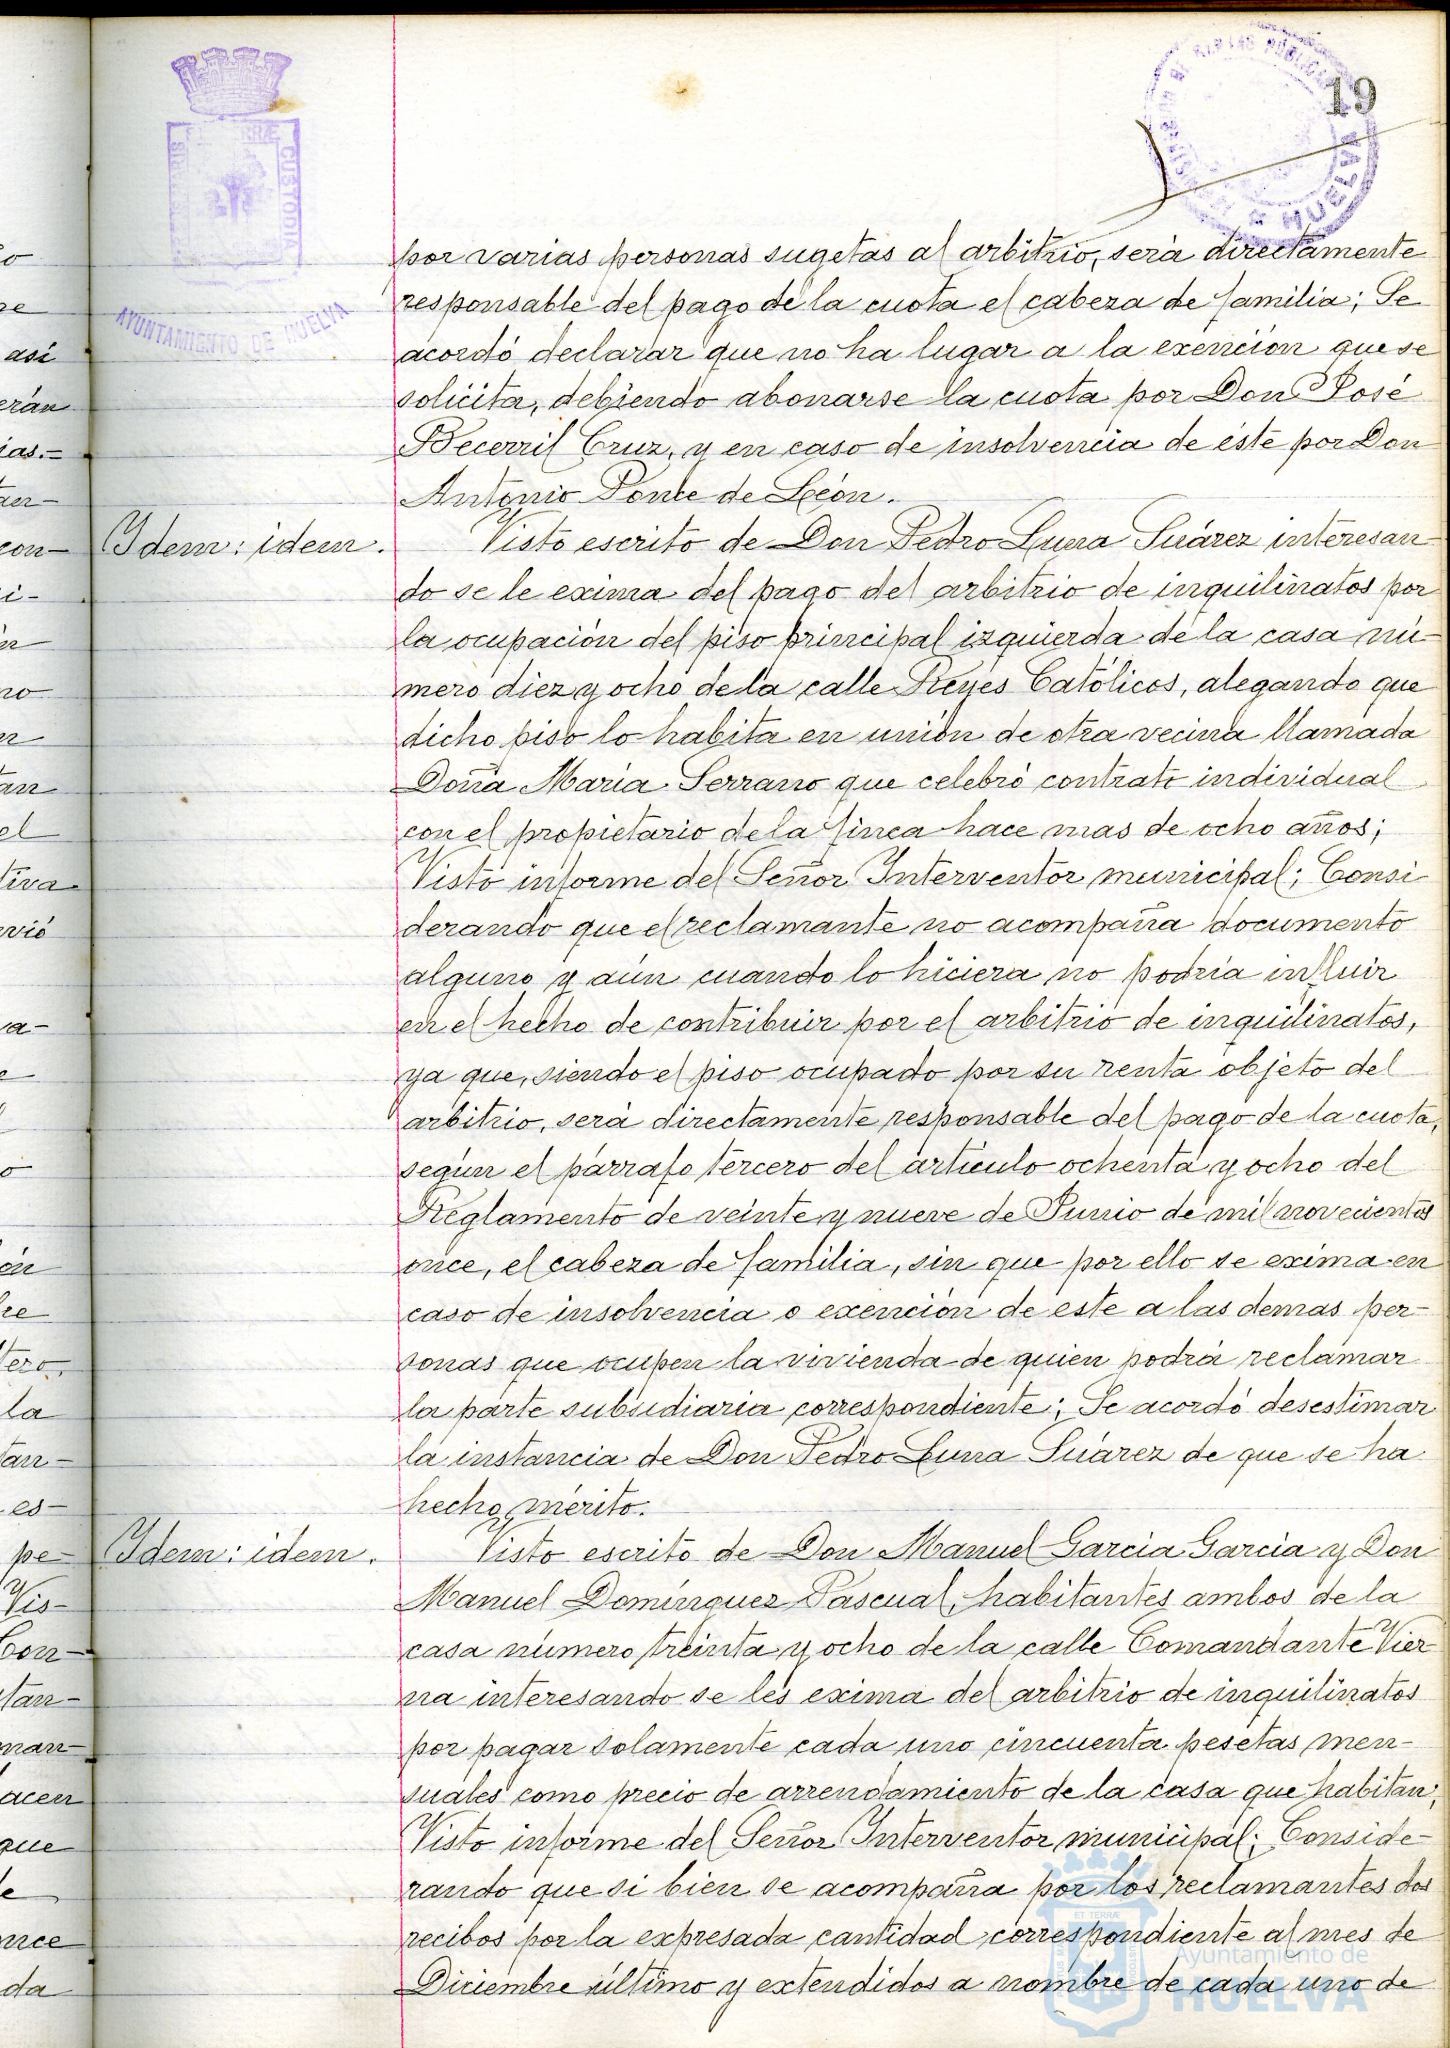 19
AYUNTAMIENTO DE HUELVA
por varias personas sugetas al arbitrio, será directamente
responsable del pago de la cuota el cabeza de familia; Se
acordó declarar que no ha lugar a la exención que se
solicita, debiendo abonarse la cuota por Don José
Becerril Cruz, y en caso de insolvencia de éste por Don
Antonio Ponce de León.
Idem: idem.
Visto escrito de Don Pedro Luna Suárez interesan-
do se le exima del pago del arbitrio de inquilinatos por
la ocupación del piso principal izquierda de la casa nú-
mero diez y ocho de la calle Reyes Católicos, alegando que
dicho piso lo habita en unión de otra vecina llamada
Doña María Serrano que celebró contrato individual
con el propietario de la finca hace mas de ocho años;
Visto informe del Señor Interventor municipal; Consi
derando que el reclamante no acompaña documento
alguno y aún cuando lo hiciera no podría influir
en el hecho de contribuir por el arbitrio de inquilinatos,
ya que, siendo el piso ocupado por su renta objeto del
arbitrio, será directamente responsable del pago de la cuota,
según el párrafo tercero del artículo ochenta y ocho del
Reglamento de veinte y nueve de Junio de mil novecientos
once, el cabeza de familia, sin que por ello se exima en
caso de insolvencia o exención de este a las demas per-
sonas que ocupen la vivienda de quien podrá reclamar
la parte subsidiaria correspondiente; Se acordó desestimar
la instancia de Don Pedro Luna Suárez de que se ha
hecho mérito.
Idem: idem.
Visto escrito de Don Manuel Garcia Garcia y Don
Manuel Domínguez Pascual, habitantes ambos de la
casa número treinta y ocho de la calle Comandante Vier
na interesando se les exima del arbitrio de inquilinatos
por pagar solamente cada uno cincuenta pesetas men-
suales como precio de arrendamiento de la casa que habitan;
Visto informe del Señor Interventor municipal; Conside-
rando que si bien se acompaña por los reclamantes dos
recibos por la expresada cantidad correspondiente al mes de
Diciembre último y extendidos a nombre de cada uno de
Ayuntamiento de
HUELVA